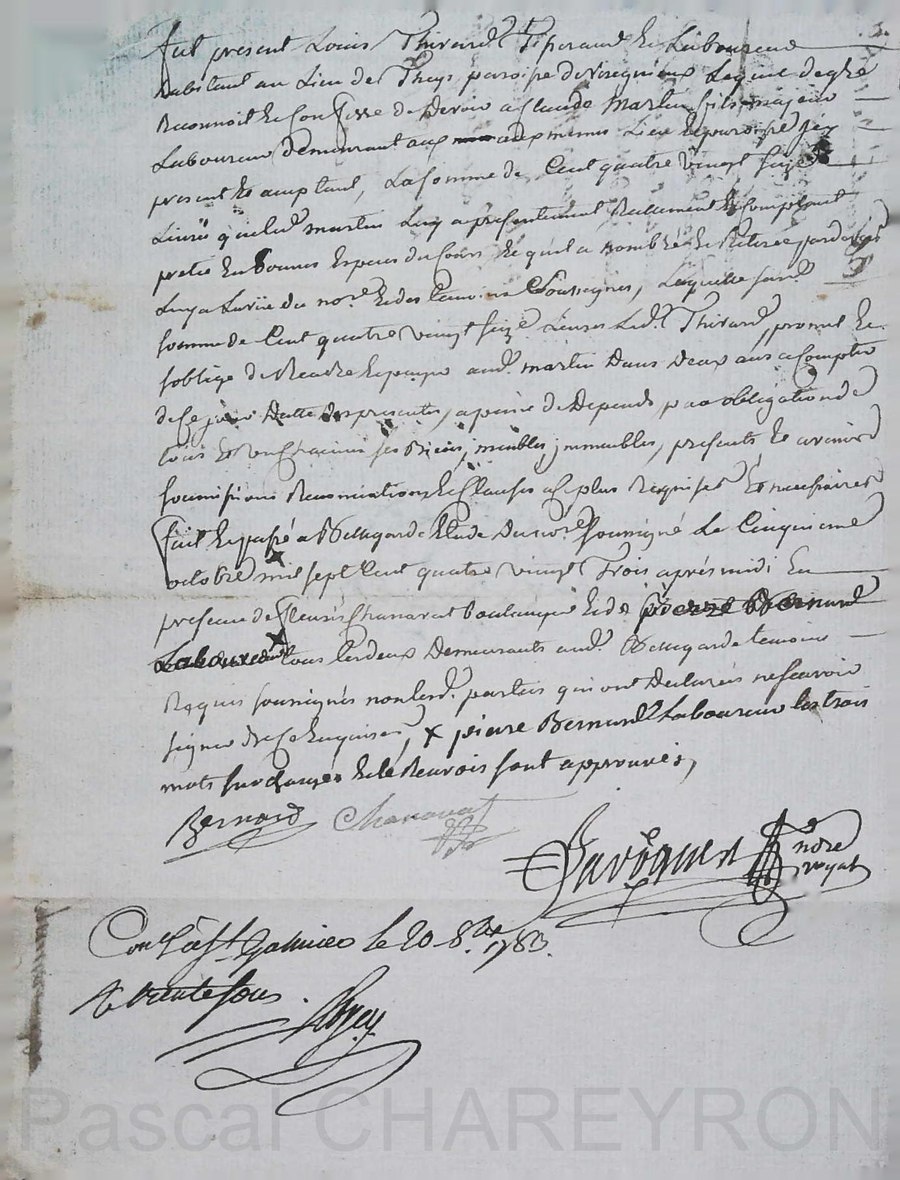 fut present Louis Thivard Tisserand et Laboureur
habitant au Lieu de Theys paroisse de Virignieux Lequel de gré
Reconnoit et Confesse de Devoir a Claude Martin fils majeur
Laboureur demeurant aux memes Lieu et paroisse jcy
present et acceptant, La somme de Cent quatre vingt seize
Livres que led martin Luy a presentement Reellement et Comptant
preté en bonnes Especes du Cours et qu'il a nombré et Retirée
a La Vüe du nore. et des temoins Soussignés, Laquelle susd.
somme de Cent quatre vingt seize Livres Led. Thivard promet et
s'oblige de Rendre et payer aud. martin Dans Deux ans a Compter
de Ce jour Datte des presentes, a peine de Depends par obligation de
tous et un Chacuns ses Biens, meubles jmmeubles, presents et avenir
soumissions Renonciations et Clauses a Ce plus Requises et necessaires
fait et passé a Bellegarde Etude du nore. soussigné Le Cinquieme
octobre mil sept Cent quatre vingt Trois après midi En
presence de fleuri Chanavat boulanger et de pierre Bernard
Laboureur tous les deux Demeurants aud. Bellegarde temoins
Requis soussignés non lesd. parties qui ont Declarés ne scavoir
signer De Ce Enquises, x pierre Bernard Laboureur les trois
mots surchargés et le Renvois sont approuvés,
Bernard Chanavat
nore
royal
Conlé à St. Galmier le 20 8bre 1783.
R trente sous.
Pascal CHAREYRON